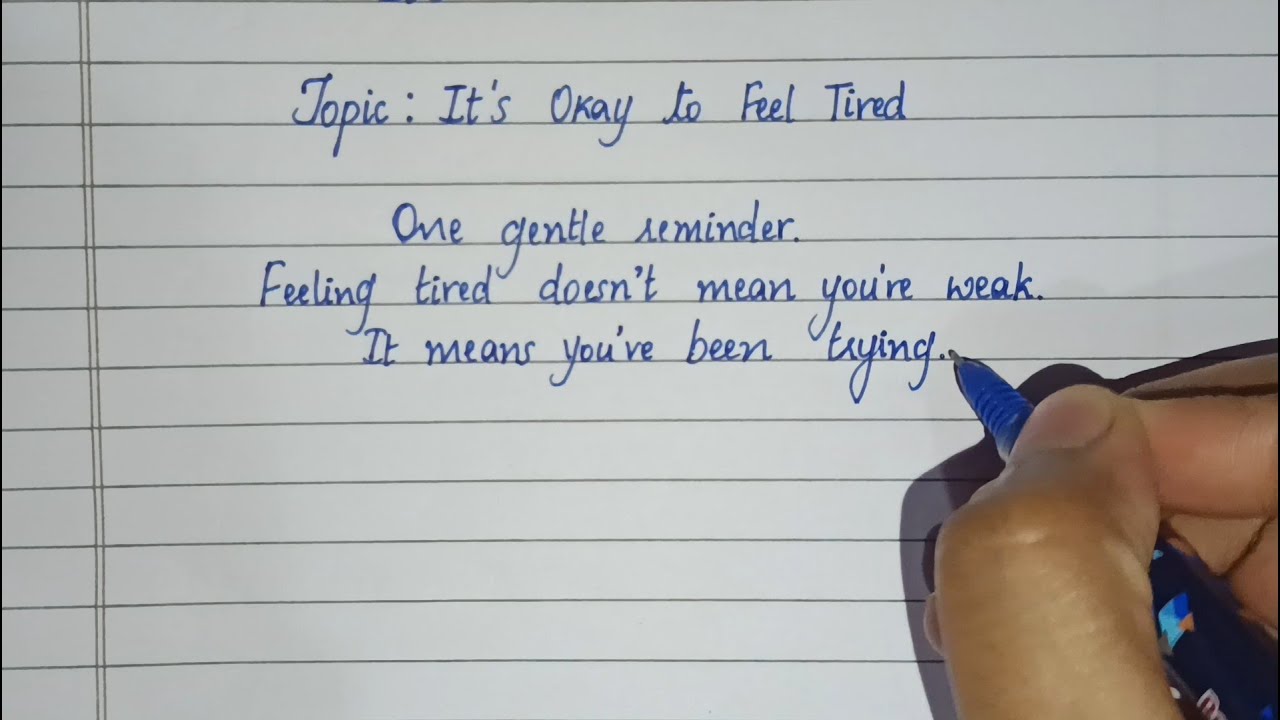 Topic: It's Okay to Feel Tired
One gentle reminder.
Feeling tired doesn't mean you're weak.
It means you've been trying.